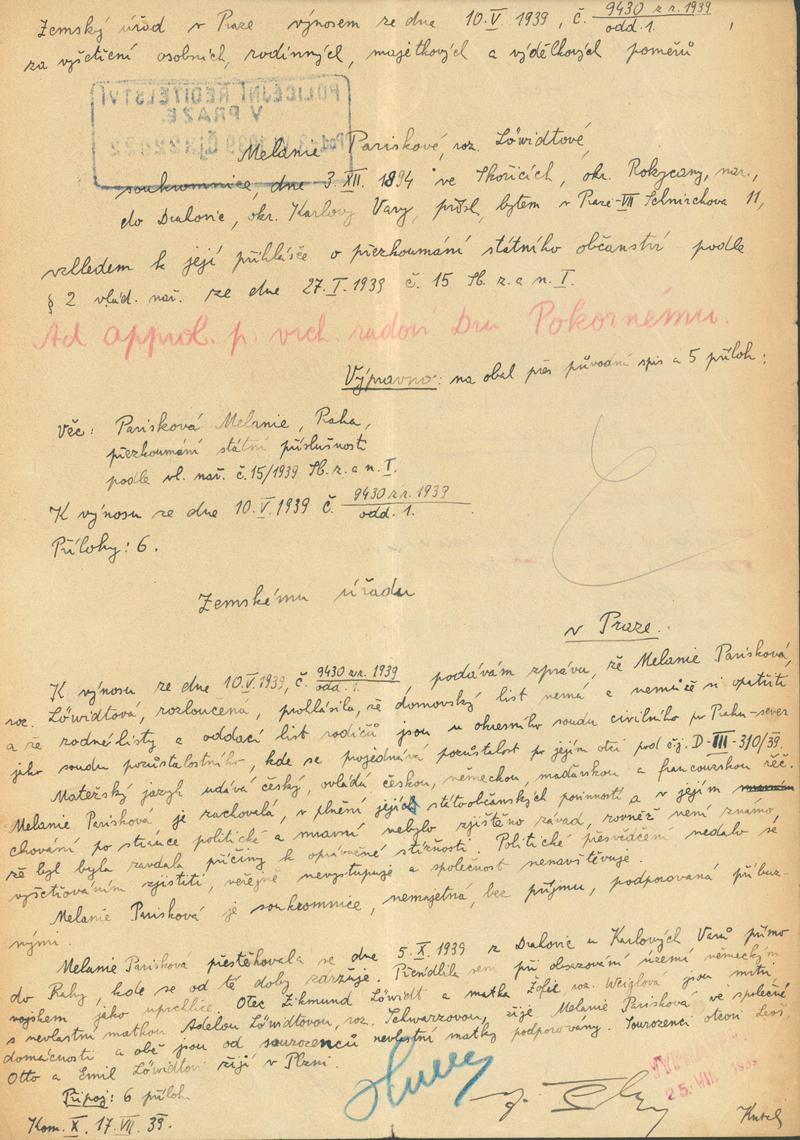 Zemský úřad v Praze výnosem ze dne 10.V.1939, č. 9430 z r. 1939 odd. 1.,
za vyšetření osobních, rodinných, majetkových a výdělkových poměrů
POLICEJNÍ ŘEDITELSTVÍ
V PRAZE
Melanie Pariskové, roz. Löwidtové,
soukromnice dne 3.XII.1894 ve Skořicích, okr. Rokycany, nar.,
do Dralovic, okr. Karlovy Vary, přísl., bytem v Praze-VII Schnirchova 11,
vzhledem k její přihlášce o přezkoumání státního občanství podle
§ 2 vlád. nař. ze dne 27.I.1939 č. 15 Sb. z. a n. I.
Ad approb. p. vrch. radovi Dru Pokornému.
Výpravno: na obal přes původní spis a 5 příloh:
Věc: Parisková Melanie, Praha,
přezkoumání státní příslušnosti
podle vl. nař. č. 15/1939 Sb. z. a n. I.
K výnosu ze dne 10.V.1939 č. 9430 z r. 1939 odd. 1.
Přílohy: 6.
Zemskému úřadu
v Praze.
K výnosu ze dne 10.V.1939, č. 9430 z r. 1939 odd. 1., podávám zprávu, že Melanie Parisková,
roz. Löwidtová, rozloučená, prohlásila, že domovský list nemá a nemůže si opatřiti
a že rodné listy a oddací list rodičů jsou u okresního soudu civilního pr Prahu-sever
jako soudu pozůstalostního, kde se projednává pozůstalost po jejím otci pod čj. D-III-310/39.
Mateřský jazyk udává český, ovládá českou, německou, maďarskou a francouzskou řeč.
Melanie Parisková je zachovalá, v plnění jejích státoobčanských povinností a v jejím
chování po stránce politické a mravní nebylo zjištěno závad, rovněž není známo,
že byl byla zavdala příčiny k oprávněné stížnosti. Politické přesvědčení nedalo se
vyšetřováním zjistiti, veřejně nevystupuje a společnost nenavštěvuje.
Melanie Parisková je soukromnice, nemajetná, bez příjmu, podporovaná příbuz-
nými.
Melanie Parisková přestěhovala se dne 5.X.1939 z Dralovic u Karlových Varů přímo
do Prahy, kde se od té doby zdržuje. Přesídlila sem při obsazování území německým
vojskem jako uprchlice. Otec Zikmund Löwidt a matka Žofie roz. Weiglová jsou mrtvi,
s nevlastní matkou Adelou Löwidtovou, roz. Schwarzovou, žije Melanie Parisková ve společné
domácnosti a obě jsou od sourozenců nevlastní matky podporovány. Sourozenci otcovi Leoš,
Otto a Emil Löwidtovi žijí v Plzni.
Připoj: 6 příloh.
Kom. X. 17.VII.39.